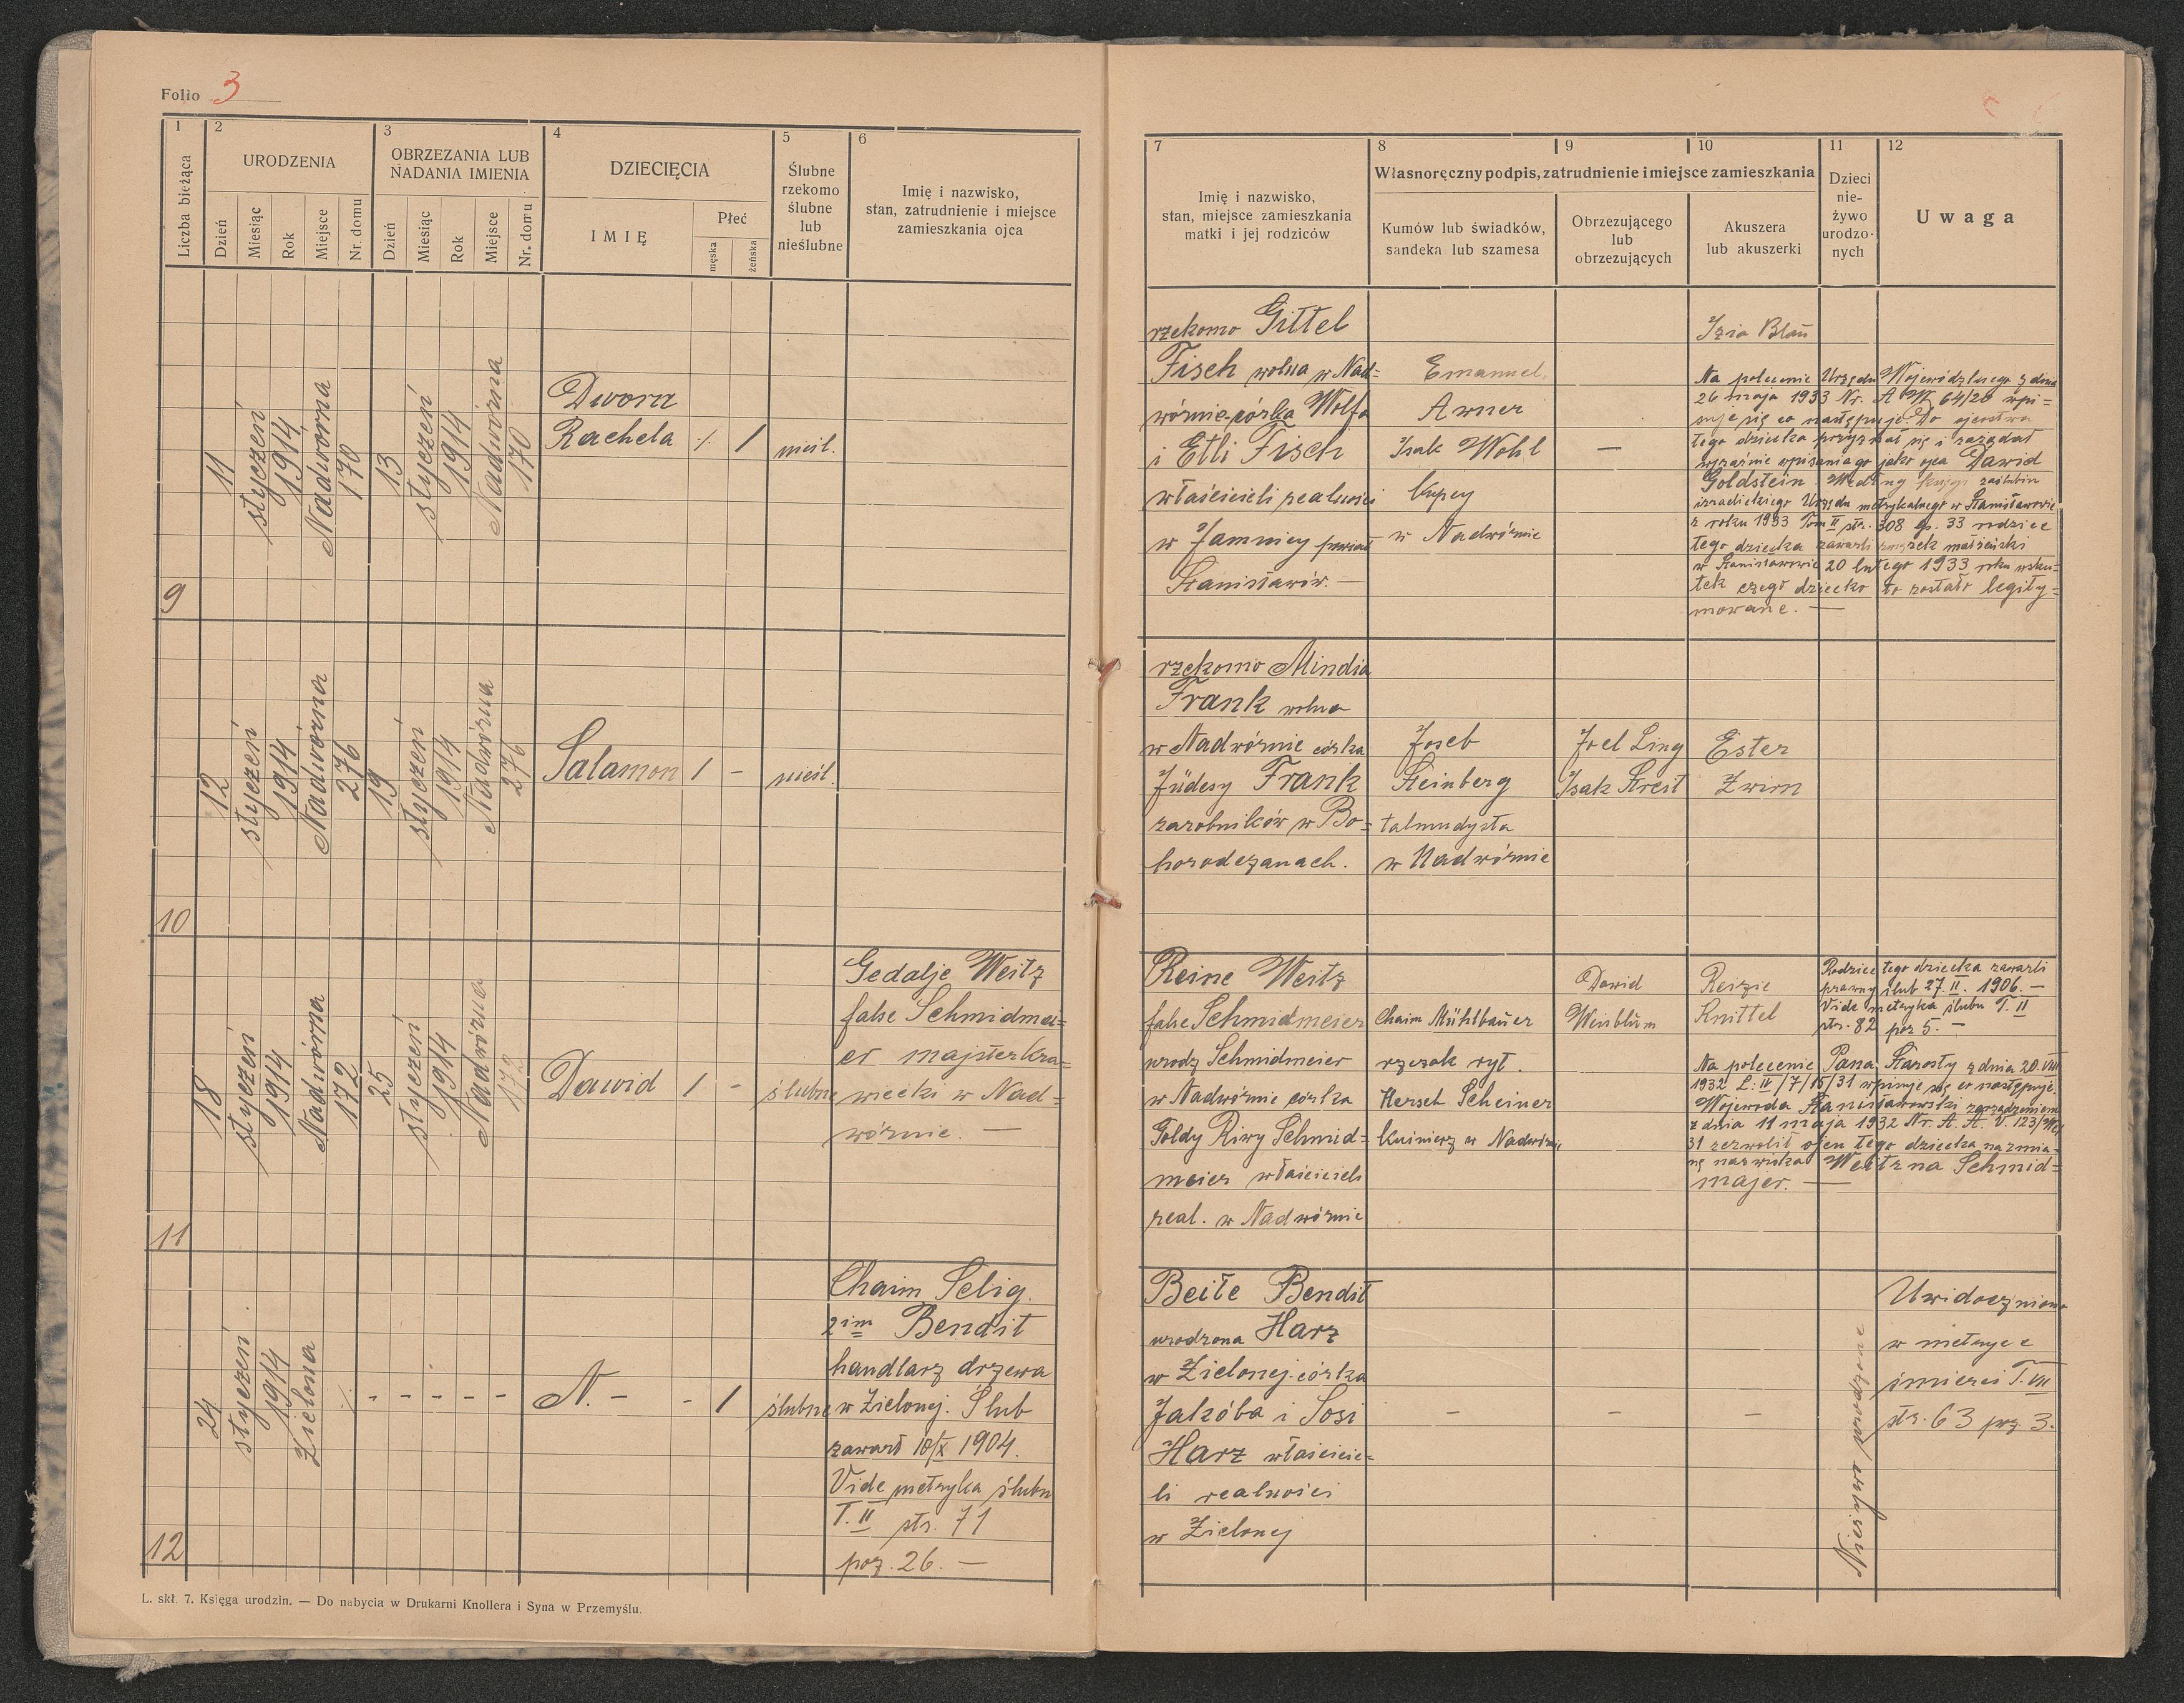 Folio 3
1
2
3
4
5
6
Liczba bieżąca
URODZENIA
OBRZEZANIA LUB
NADANIA IMIENIA
DZIECIĘCIA
Ślubne
rzekomo
ślubne
lub
nieślubne
Imię i nazwisko,
stan, zatrudnienie i miejsce
zamieszkania ojca
Dzień
Miesiąc
Rok
Miejsce
Nr. domu
Dzień
Miesiąc
Rok
Miejsce
Nr. domu
IMIĘ
Płeć
męska
żeńska
7
8
9
10
11
12
Imię i nazwisko,
stan, miejsce zamieszkania
matki i jej rodziców
Własnoręczny podpis, zatrudnienie i miejsce zamieszkania
Kumów lub świadków,
sandeka lub szamesa
Obrzezującego
lub
obrzezujących
Akuszera
lub akuszerki
Dzieci
nie-
żywo
urodzo-
nych
Uwaga
9
11
styczeń
1914
Nadwórna
170
13
styczeń
1914
Nadwórna
170
Dwora
Rachela ·/· 1
nieśl.
rzekomo Gittel
Fisch wolna w Nad=
wórnie córka Wolfa
i Etli Fisch
właścicieli realności
w Jamnicy powiat
Stanisławów. —
Emanuel
Awner
Isak Wohl
kupcy
w Nadwórnie
—
Izia Blaŭ
Na polecenie Urzędu Wojewódzkiego z dnia
26 maja 1933 Nr. A VII 64/28 wpi=
suje się co następuje: Do ojcostwa
tego dziecka przyznał się i zażądał
wyraźnie wpisania go jako ojca Dawid
Goldstein. Według księgi zaślubin
izraelickiego Urzędu metrykalnego w Stanisławowie
z roku 1933 Tom II str. 308 lp. 33 rodzice
tego dziecka zawarli związek małżeński
w Stanisławowie 20 lutego 1933 roku wsku=
tek czego dziecko to zostało legity=
mowane. —
10
12
styczeń
1914
Nadwórna
276
19
styczeń
1914
Nadwórna
276
Salamon 1 -
nieśl.
rzekomo Mindia
Frank wolna
w Nadwórnie córka
Jüdesy Frank
zarobników w Bo=
horodczanach.
Joseb
Steinberg
talmudysta
w Nadwórnie
Joel Ling
Isak Streit
Ester
Zwirn
11
18
styczeń
1914
Nadwórna
172
25
styczeń
1914
Nadwórna
172
Dawid 1 -
ślubne
Gedalje Weitz
false Schmidmei=
er majster kra=
wiecki w Nad=
wórnie. —
Reine Weitz
false Schmidmeier
urodz Schmidmeier
w Nadwórnie córka
Goldy Riwy Schmid=
meier właścicieli
real. w Nadwórnie
Chaim Mühlbaŭer
rzezak ryt.
Hersch Scheiner
kuśnierz w Nadwórnie
Dawid
Weinblŭm
Reizie
Knittel
Rodzice tego dziecka zawarli
prawny ślub 27. II. 1906. —
Vide metryka ślubu T. II
str. 82 poz 5. —
Na polecenie Pana Starosty z dnia 20. VIII
1932 L. IV/7/15/31 wpisuje się co następuje:
Wojewoda Stanisławowski zarządzeniem
z dnia 11 maja 1932 Nr. A. A. V. 123/We/
31 zezwolił ojcu tego dziecka na zmia=
nę nazwiska Weitz na Schmid=
majer. —
12
24
styczeń
1914
Zielona
·/·
- - - - -
N. - - 1
ślubne
Chaim Selig
2im Bendit
handlarz drzewa
w Zielonej. Ślub
zawarł 10/X 1904.
Vide metryka ślubu
T. II str. 71
poz. 26. —
Beile Bendit
urodzona Harz
w Zielonej córka
Jakóba i Sosi
Harz właścicie=
li realności
w Zielonej
—
—
—
Nieżywo urodzone
Uwidoczniono
w metryce
śmierci T. VII
str. 63 poz. 3.
L. skł. 7. Księga urodzin. — Do nabycia w Drukarni Knollera i Syna w Przemyślu.